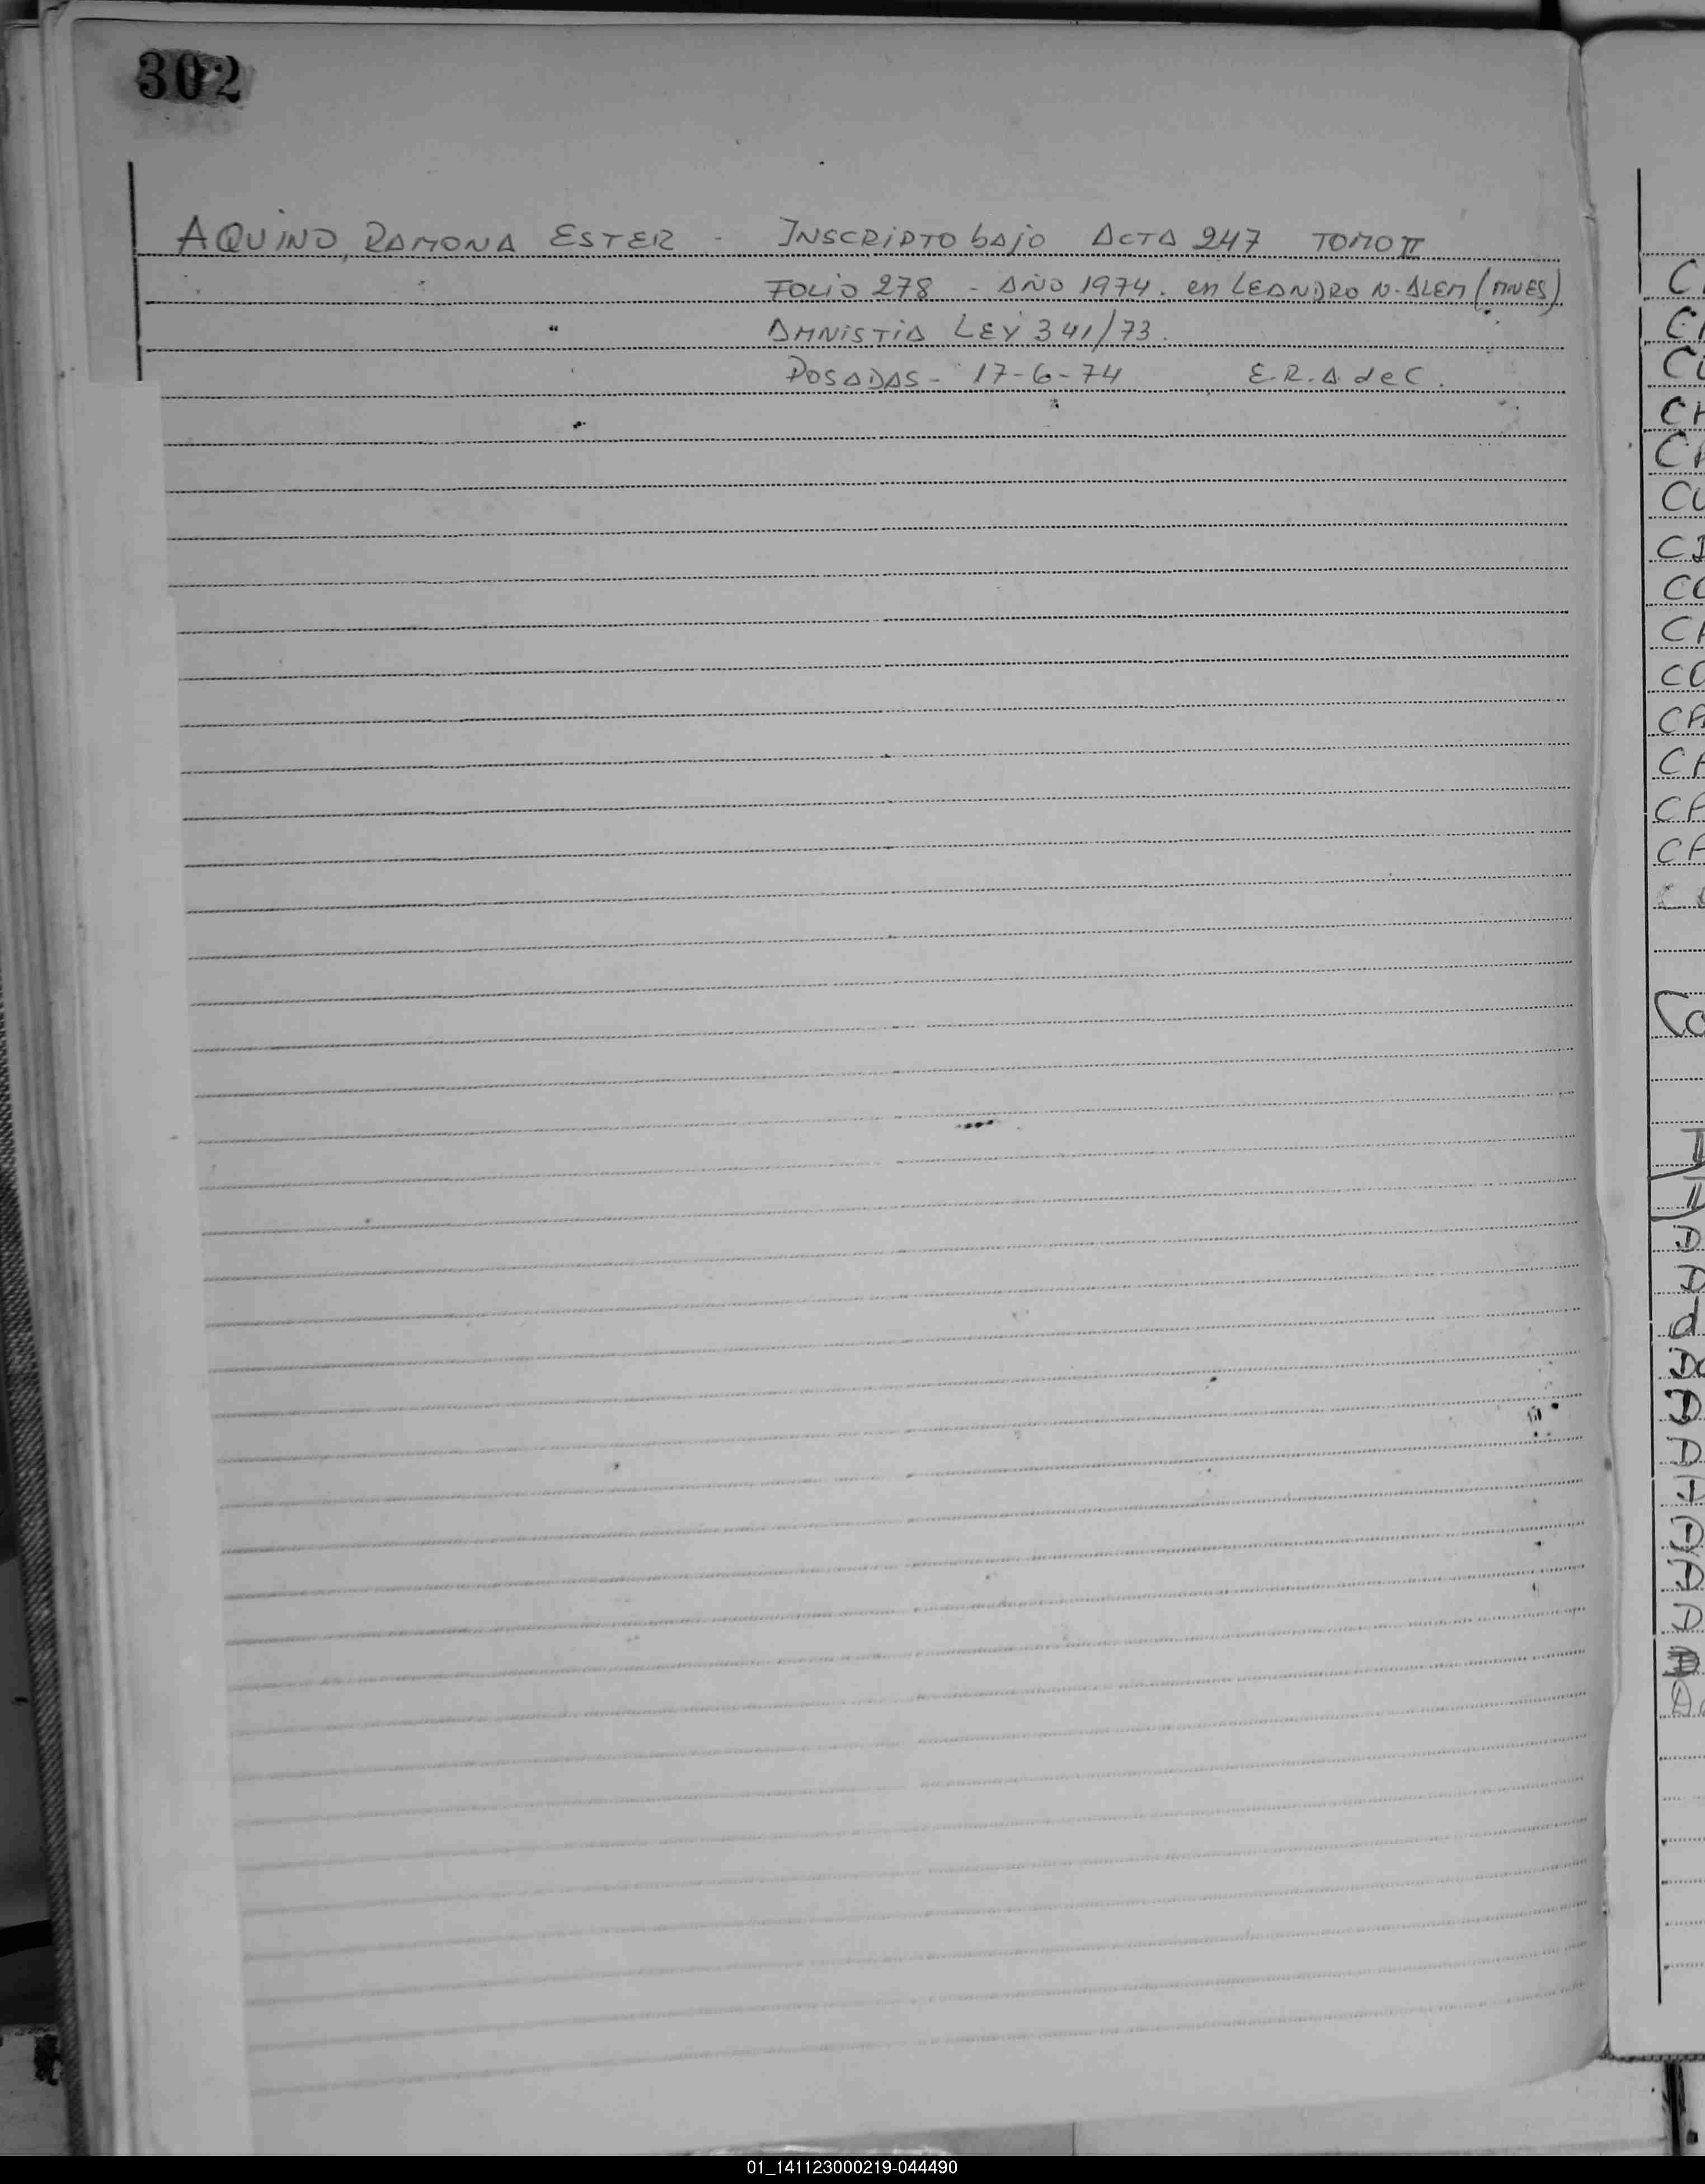 302
AQUINO, RAMONA ESTER - INSCRIPTO bAjo ACTA 247 TOMO II
FOLIO 278 - AÑO 1974. en LEANDRO N. ALEM (MNES)
"
AMNISTIA LEY 341/73.
POSADAS - 17-6-74 E.R.A. de C.
C
C
C
CH
C
CU
C
C
C
C
C
C
C
C
Co
D
D
d
D
D
D
01_141123000219-044490